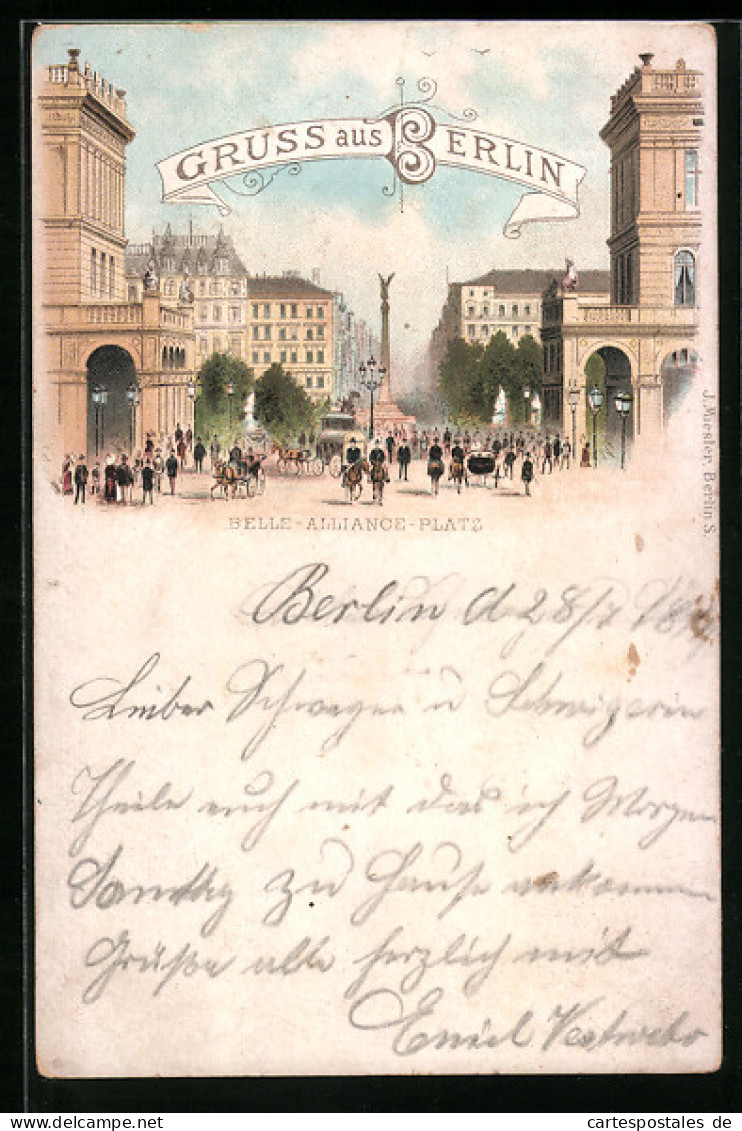 GRUSS aus BERLIN
BELLE-ALLIANCE-PLATZ
J. Miesler, Berlin S.
Berlin d 28/7 18
Lieber Schwager u Schwigerin
Theile euch mit das ich Morgen
zu Hause ankommen
Grüße alle herzlich mit
Emiel
cartespostales de